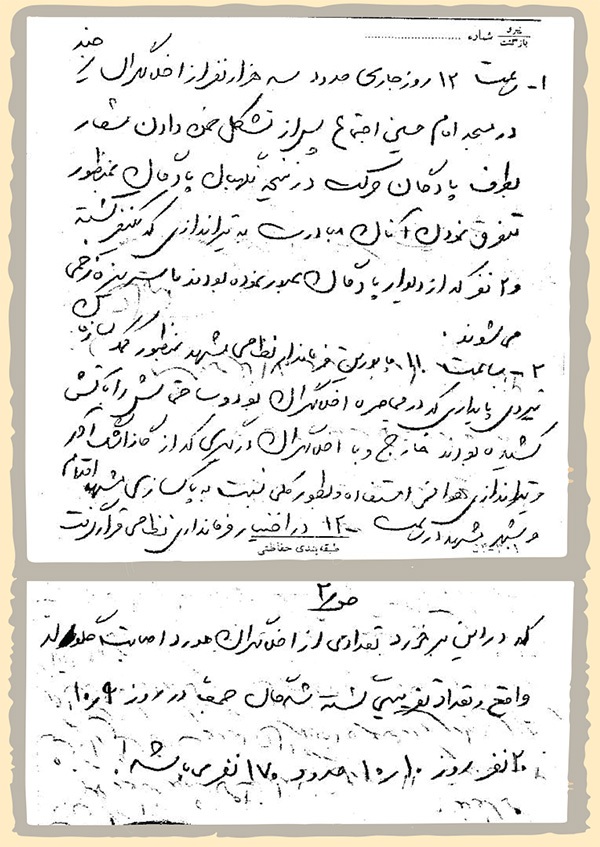 نیرو
بازگشت
شماره
۱- ساعت ۱۲ روز جاری حدود سه هزار نفر از اخلالگران بیرجند
در مسجد امام حسین اجتماع پس از تشکل ضمن دادن شعار
بطرف پادگان حرکت در نتیجه نگهبان پادگان بمنظور
متفرق نمودن آنان مبادرت به تیراندازی که یکنفر کشته
و ۲ نفر که از دیوار پادگان عبور نموده بودند با سر نیزه زخمی
می شوند.
۲- ساعت ۱۱ مامورین فرمانداری نظامی مشهد بمنظور کمک به
نیروی پایداری که در محاصره اخلالگران بود و ساختمانش را آتش
کشیده بودند خارج و با اخلالگران درگیری که از گاز اشک آور
و تیراندازی هوائی استفاده و بطور کلی نسبت به پاکسازی مشهد اقدام
و شهر مشهد از ساعت ۱۲۰۰ در اختیار فرمانداری نظامی قرار گرفت
طبقه بندی حفاظتی
که در این برخورد تعدادی از اخلالگران مورد اصابت گلوله
واقع و تعداد تقریبی کشته شدگان جمعا در روز ۹ر۱۰
۲۰ نفر روز ۱۰ر۱۰ حدود ۱۷۰ نفر می باشد.